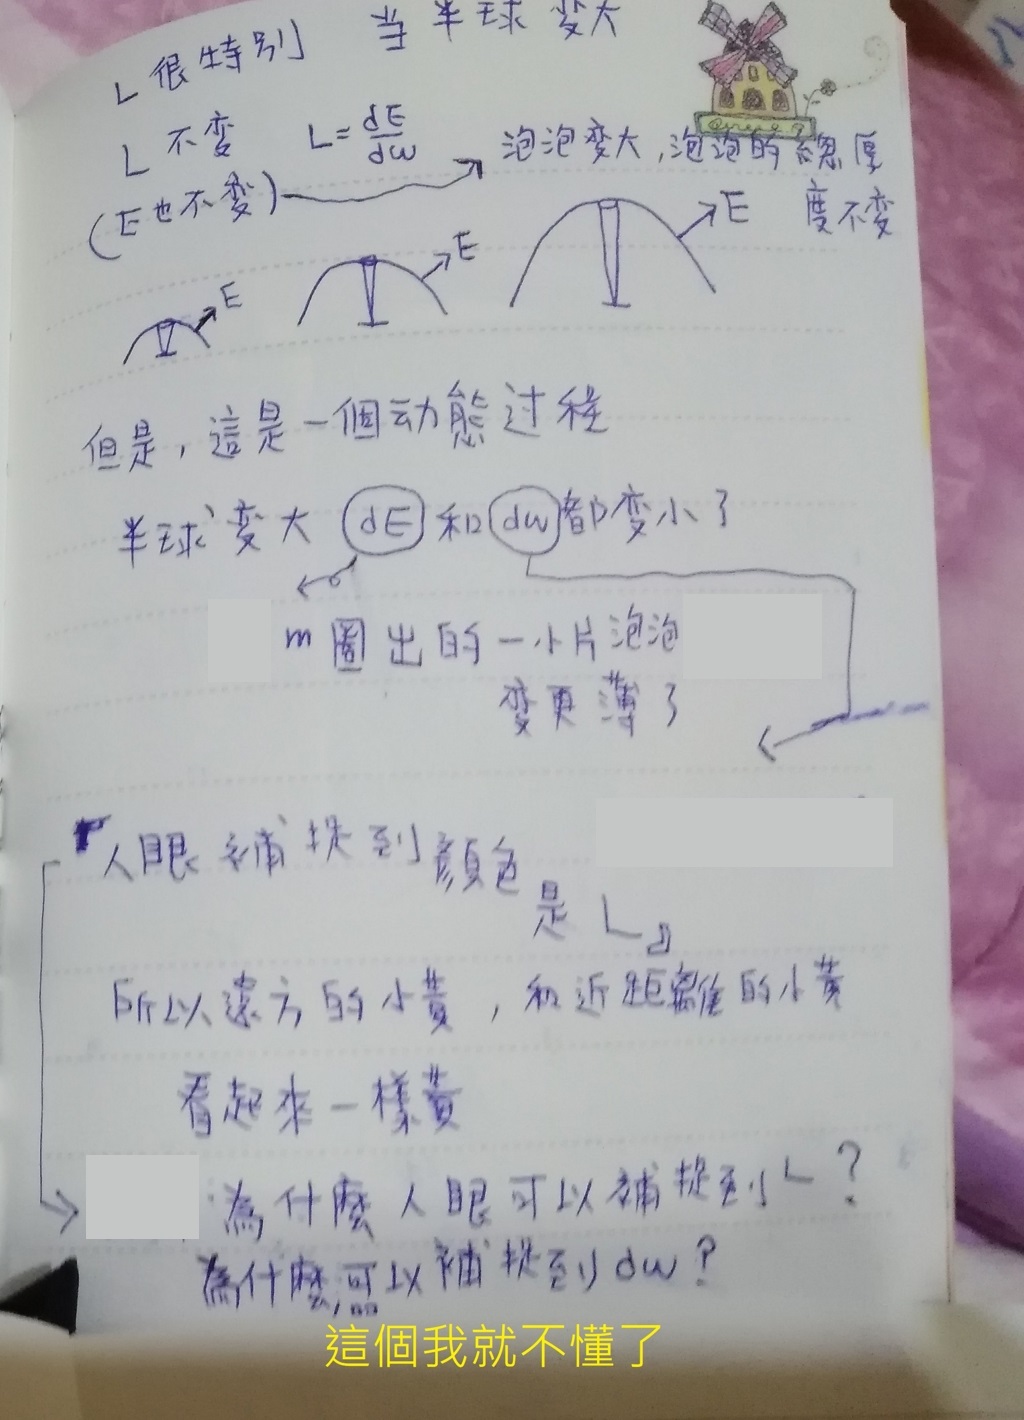 L 很特別 当半球变大
L 不变 L = dE/dω
(E也不变)
泡泡变大,泡泡的總厚
度不变
E E E
但是,這是一個动態过程
半球变大 dE 和 dω 都变小了
m圈出的一小片泡泡
变更薄了
『人眼補捉到顏色
是 L』
所以遠方的小黃,和近距離的小黃
看起來一樣黃
為什麼人眼可以補捉到 L?
為什麼可以補捉到 dω?
這個我就不懂了